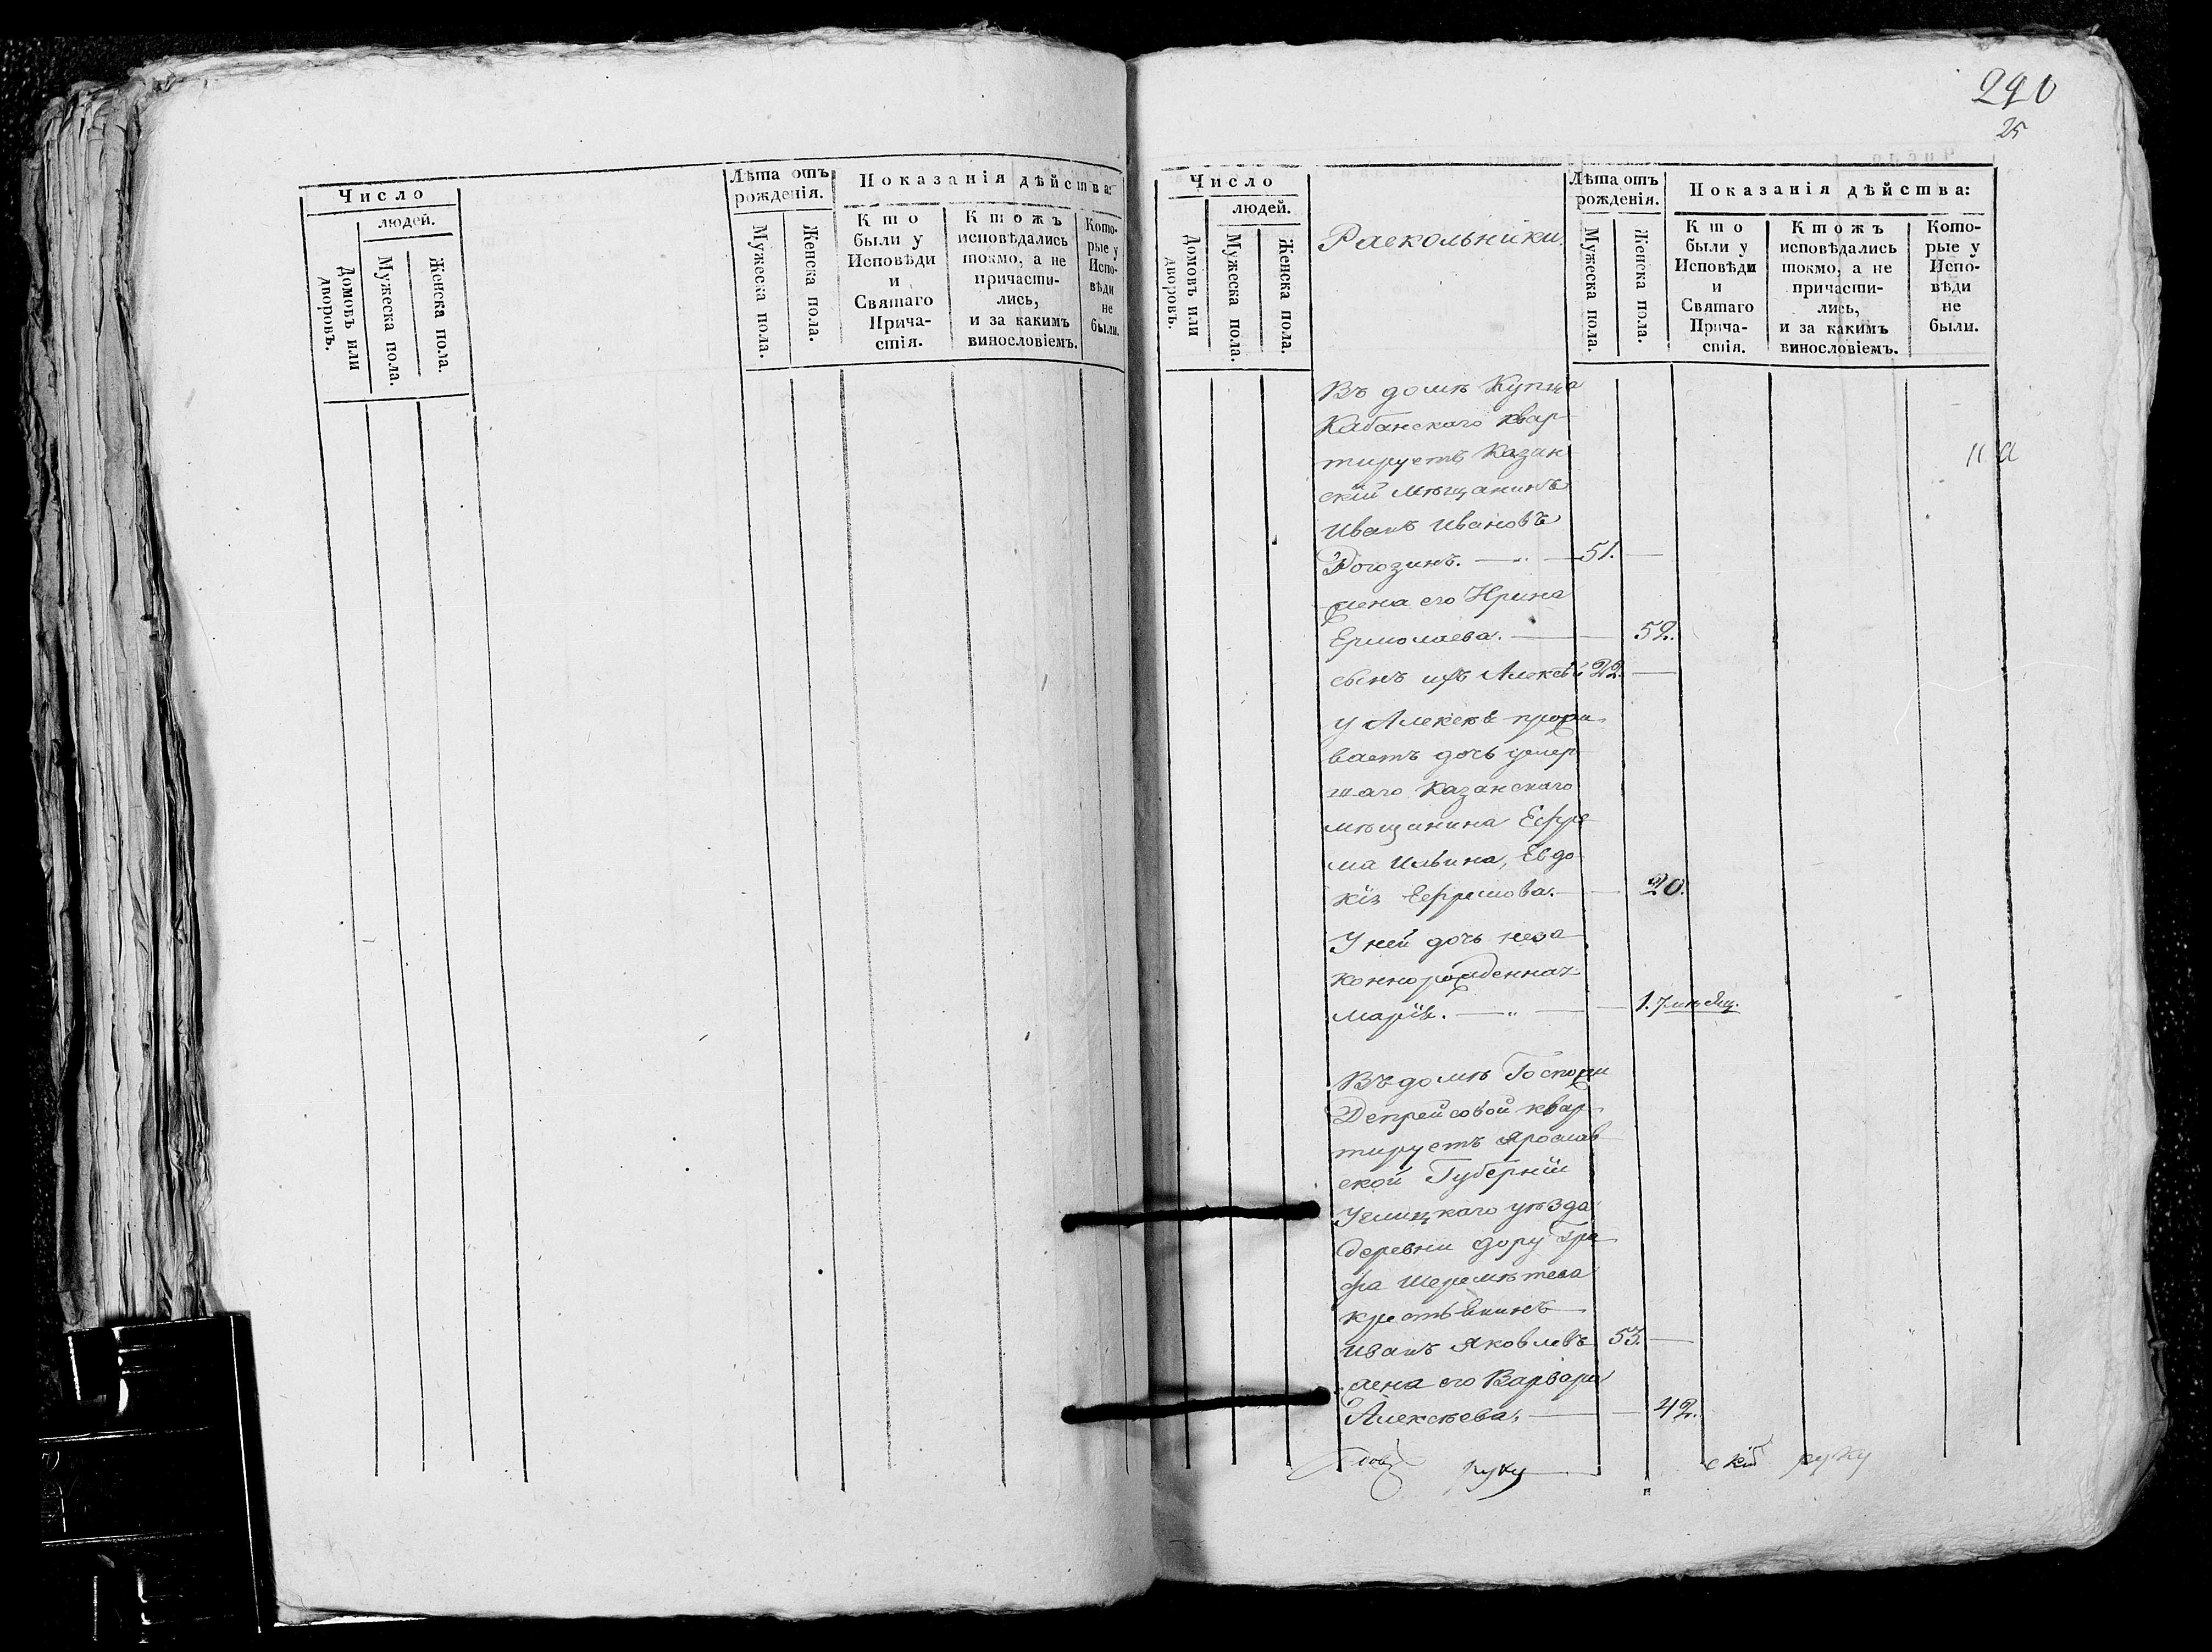 Число
людей.
Домовъ или дворовъ.
Мужеска пола.
Женска пола.
Лѣта отъ рожденія.
Мужеска пола.
Женска пола.
Показанія дѣйства:
Кто были у Исповѣди и Святаго Причастія.
Ктожъ исповѣдались токмо, а не причастились, и за какимъ винословіемъ.
Которые у Исповѣди не были.
290
25
Число
людей.
Домовъ или дворовъ.
Мужеска пола.
Женска пола.
Раскольники.
Лѣта отъ рожденія.
Мужеска пола.
Женска пола.
Показанія дѣйства:
Кто были у Исповѣди и Святаго Причастія.
Ктожъ исповѣдались токмо, а не причастились, и за какимъ винословіемъ.
Которые у Исповѣди не были.
Въ домѣ Купца
Кабанскаго квар-
тируетъ Казан
скій мѣщанинъ
Иванъ Ивановъ
Рогозинъ. 51.
жена его Ирина
Ермолаева. 52.
сынъ ихъ Алексѣй 22.
у Алексѣя прожи
ваетъ дочь умер
шаго Казанскаго
мѣщанина Ефре
ма Ильина, Евдо
кія Ефремова. 20.
У ней дочь неза
коннорожденная
Марія. 1. 7 мѣсяц.
Въ домѣ Госпожи
Депрейсовой квар-
тируетъ Ярослав
ской Губерніи
Углицкаго уѣзда
деревни Дору Гра
фа Шереметева
крестьянинъ
Иванъ Яковлевъ 53.
жена его Варвара
Алексѣева. 42.
руку
руку